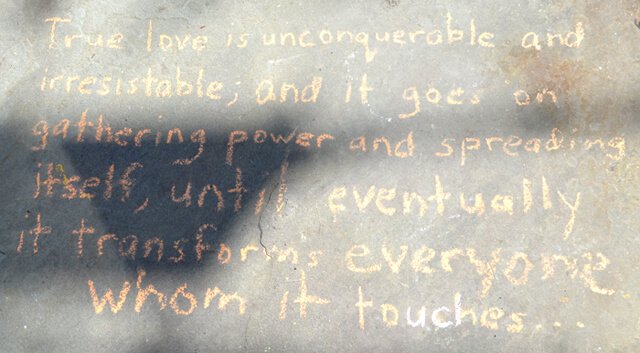 True love is unconquerable and
irresistable; and it goes on
gathering power and spreading
itself, until eventually
it transforms everyone
whom it touches...